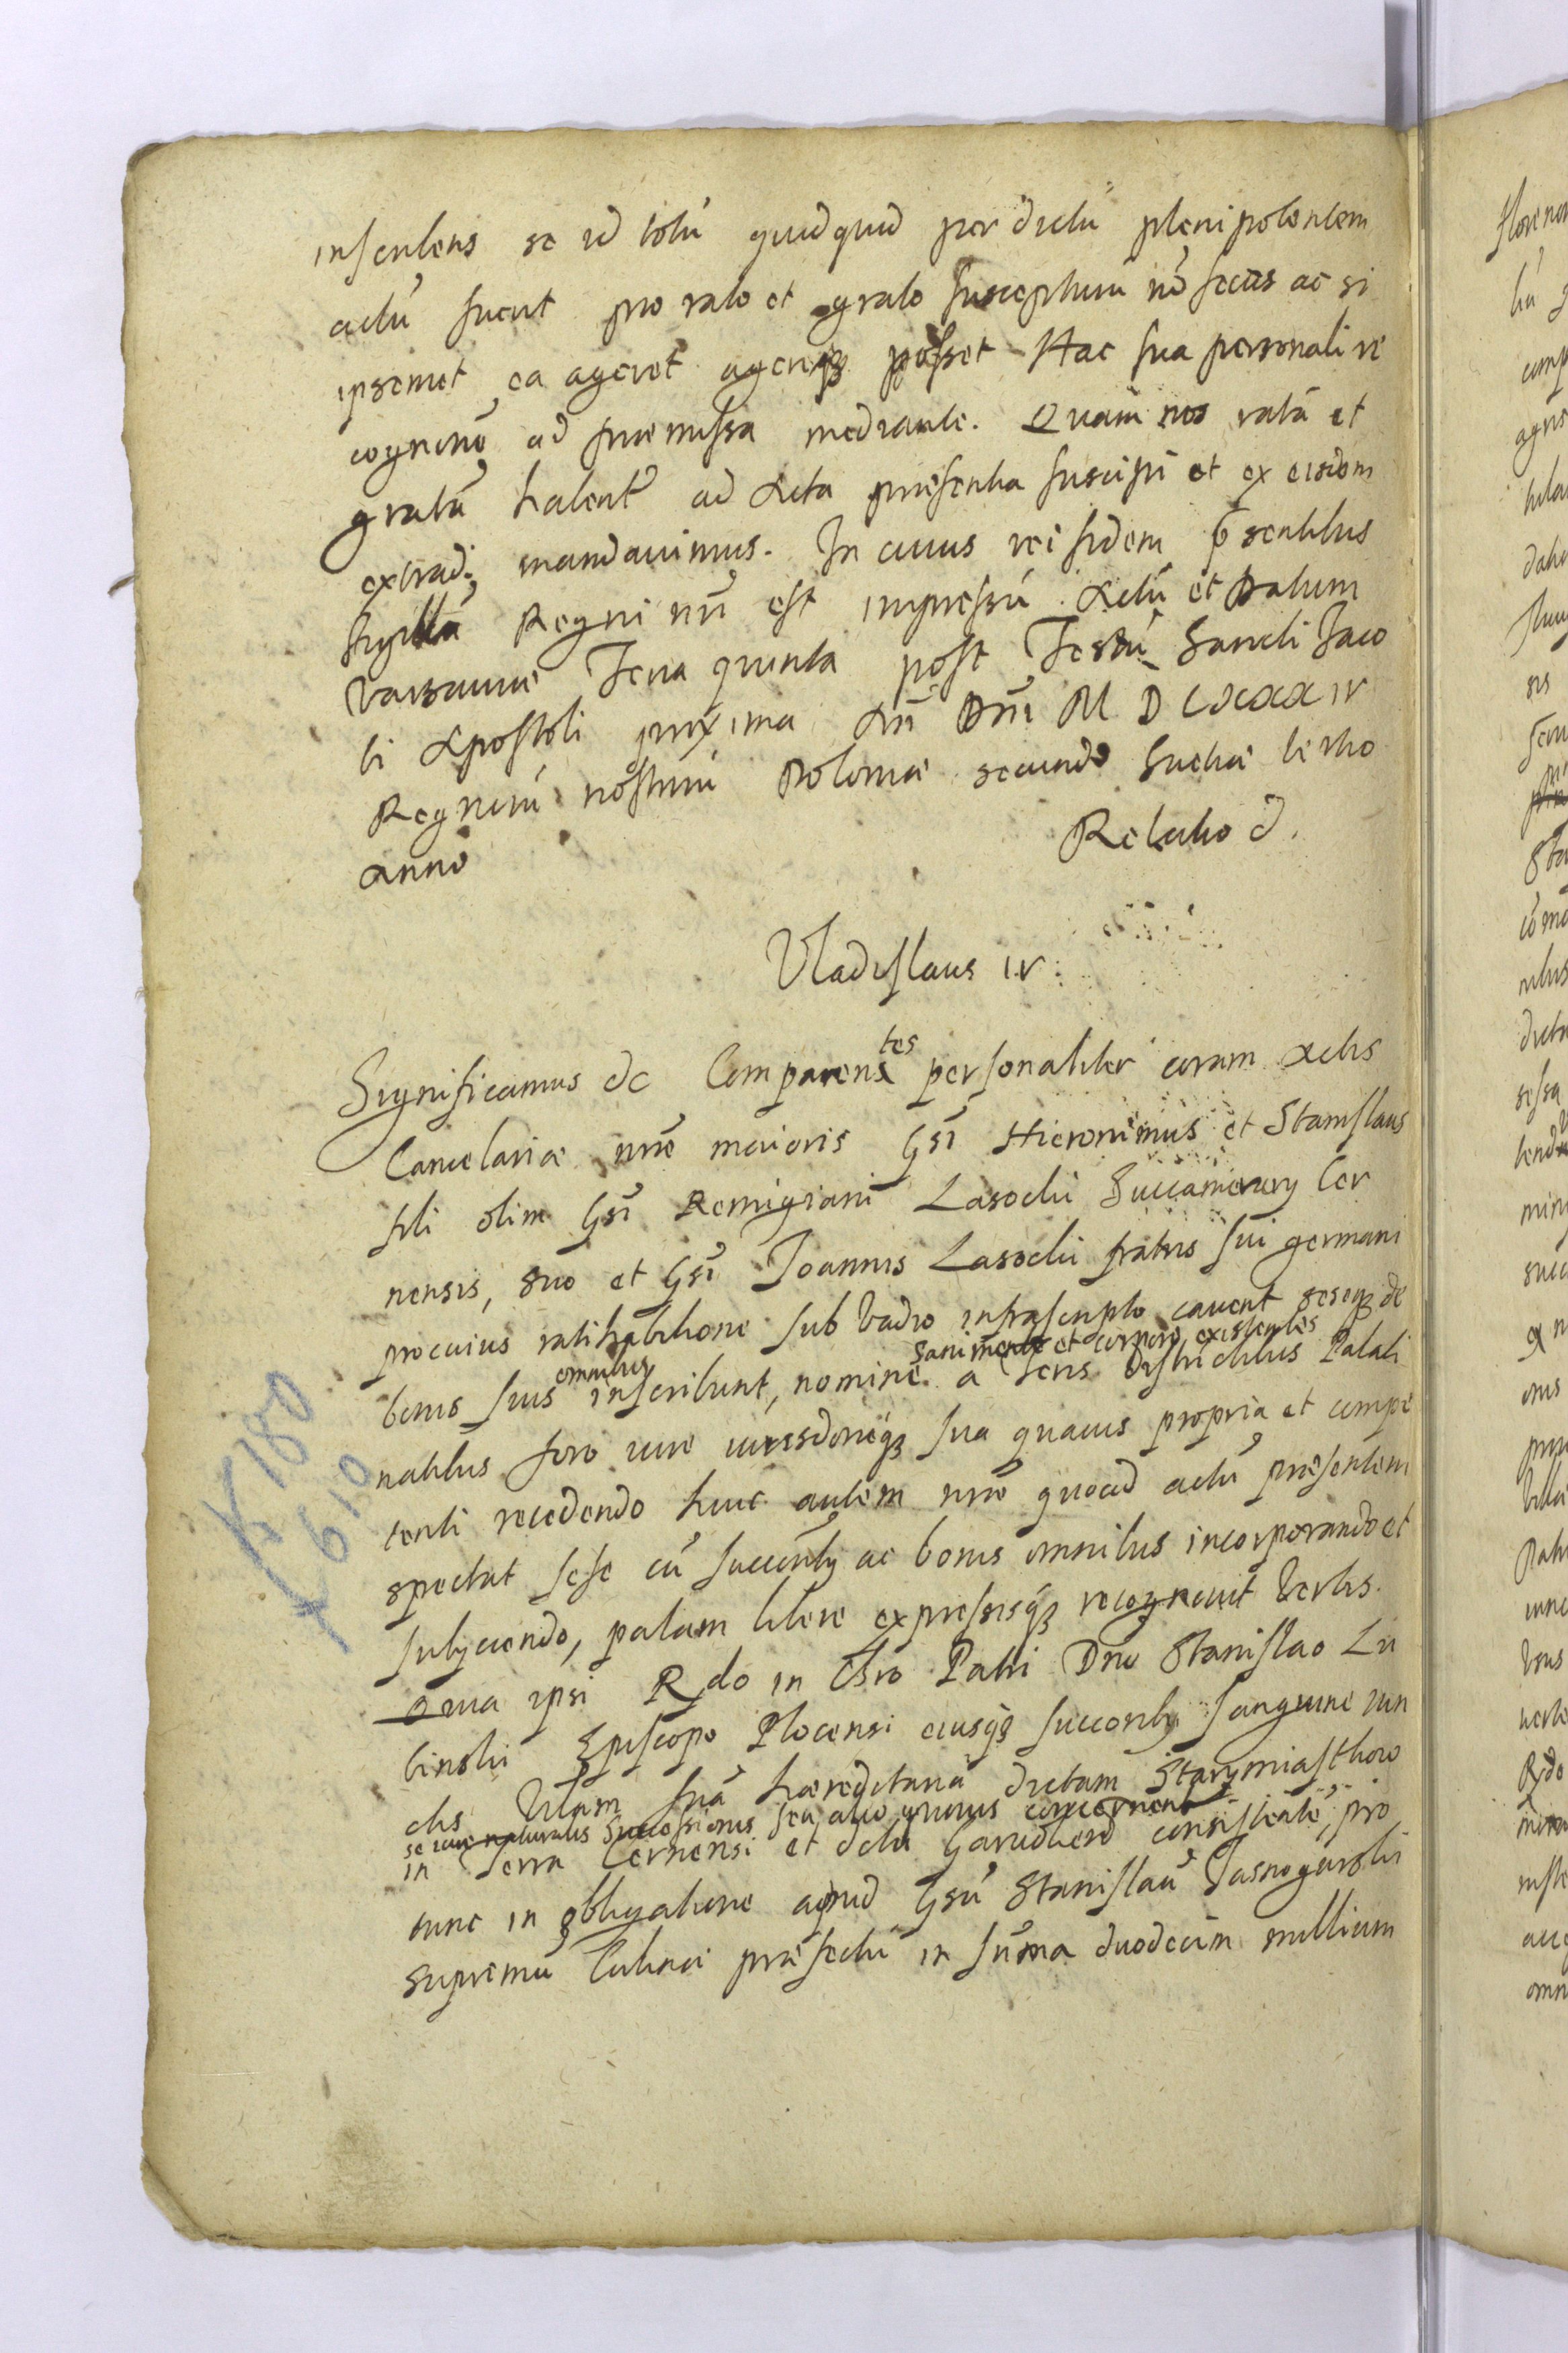 inserens se id totū quidquid per dictū plenipotentem
actū fuerit pro rato et grato suscepturū nō secus ac si
ipsemet ea ageret agereqȝ posset Hac sua personali re
cognitōne ad praemissa mediante. Quam nos ratā et
gratā habentes ad Acta praesentia suscipi et ex eisdem
extradi mandavimus. In cuius rei fidem p̄sentibus
Sigillū Regni nr̄i est impressū. Actū et Datum
Varsaviae Feria quinta post Festū Sancti Jaco
bi Apostoli proxima An̄ Dn̄i M D C XXX IV
Regnorū nostrorū Poloniae secundo Sueciae tertio
anno
Relatio d.
Vladislaus IV.
Significamus &c Comparentes personaliter coram Actis
Cancelariae nr̄ae maioris Gsī Hieronimus et Stanislaus
filii olim Gsī Remigiani Lasockii Succamerary Cer
nensis, suo et Gsī Joannis Lasockii fratris sui germani
pro cuius ratihabitione sub vadio infrascripto cavent seseqȝ de
sani mente et corpore existentes
bonis suis omnibus inscribunt, nomine a Terris Districtibus Palati
natibus foro iure iurisdōneqȝ sua quavis propria et compe
tenti recedendo huic autem nr̄ae quoad actū praesentem
spectat sese cū succorib⁹ ac bonis omnibus incorporando et
subjiciendo, palam libere expressisqȝ recognovit verbis.
Quia ipsi Rndo in Chro Patri Dno Stanislao Lu
binski Episcopo Plocensi eiusqȝ succorib⁹ sanguine iun
ctis Villam suā haereditariā dictam Starymiasthow
se iure naturalis Successionis seu alio quovis concernent
in Terra Cernensi et dctu Garvoliens consistente, pro
nunc in obligatione apud Gsū Stanislaū Jasnogurski
Supremū Cubiner praefectū in sūma duodecim millium
K 180
f 610